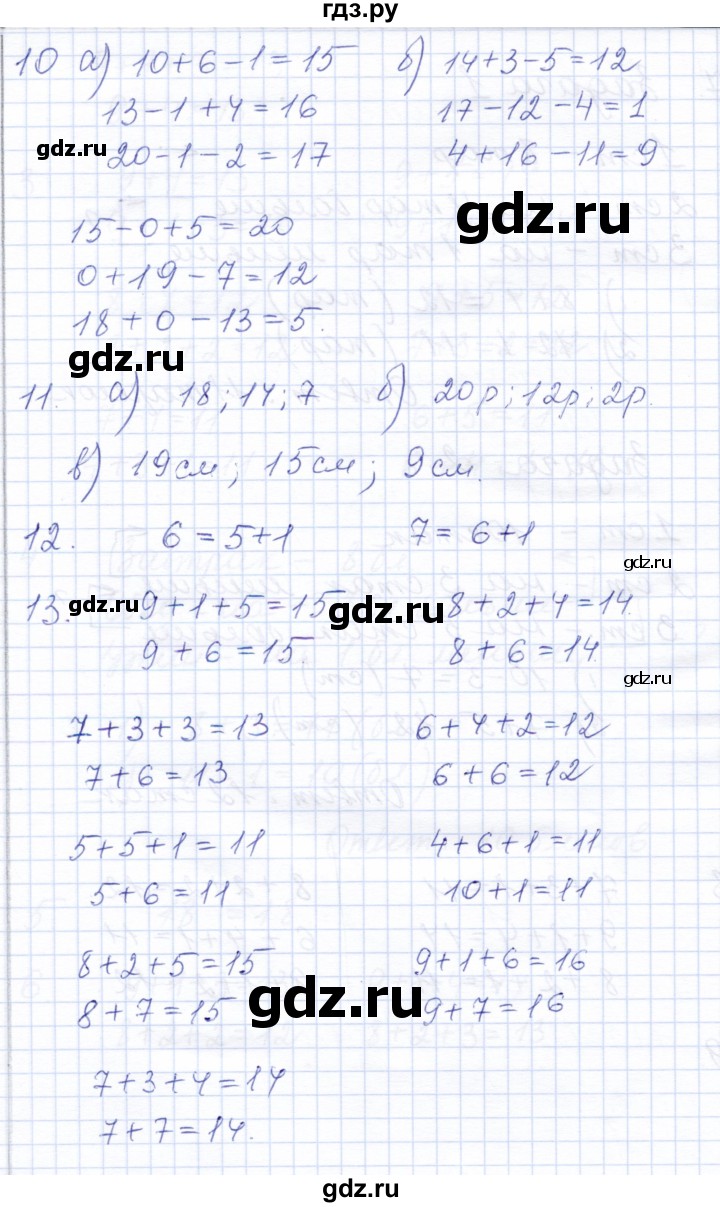 гдз.ру
10 а) 10+6-1=15 б) 14+3-5=12
13-1+4=16 17-12-4=1
gdz.ru 20-1-2=17 4+16-11=9
gdz.ru
15-0+5=20
0+19-7=12
18+0-13=5.
gdz.ru
11. а) 18; 14; 7 б) 20р; 12р; 2р.
в) 19см; 15см; 9см.
12. 6=5+1 7=6+1
gdz.ru
13. gdz.ru 9+1+5=15 gdz.ru 8+2+4=14
9+6=15. 8+6=14
gdz.ru
7+3+3=13 6+4+2=12
7+6=13 6+6=12
5+5+1=11 4+6+1=11
5+6=11 10+1=11
8+2+5=15 9+1+6=16
8+7=15 gdz.ru 9+7=16
7+3+4=14
7+7=14.
gdz.ru